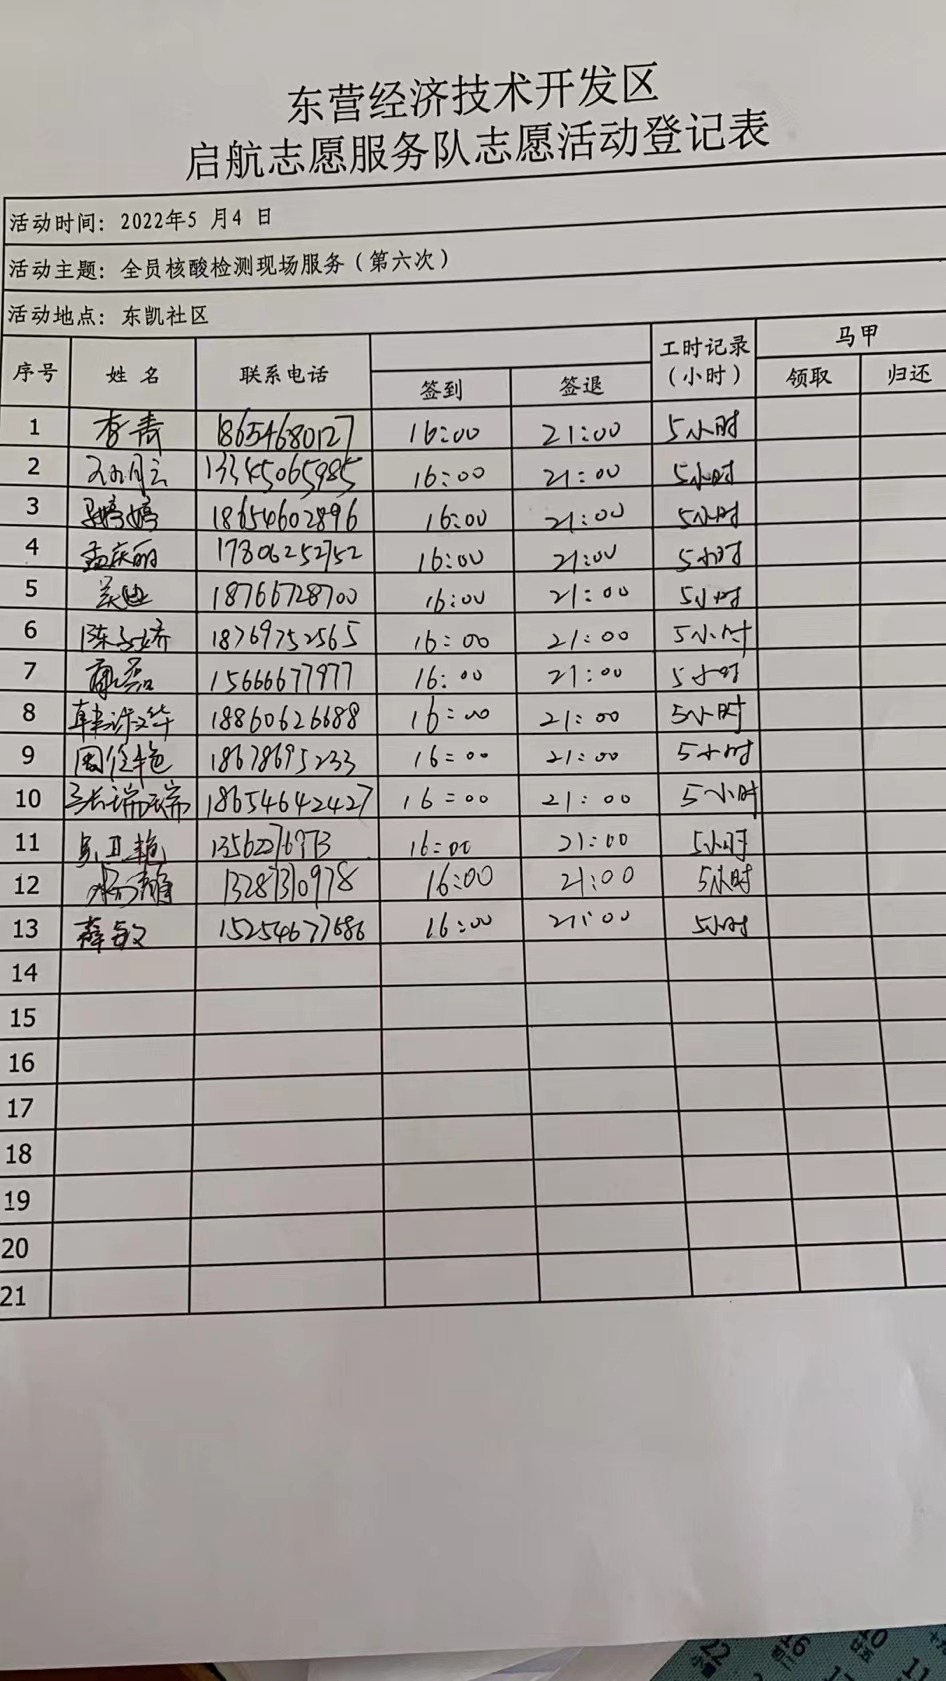 东营经济技术开发区
启航志愿服务队志愿活动登记表
活动时间：2022年5 月4 日
活动主题：全员核酸检测现场服务（第六次）
活动地点：东凯社区
序号 姓 名 联系电话 签到 签退 工时记录（小时） 马甲 领取 归还
1 李青 18654680127 16:00 21:00 5小时
2 13345065985 16:00 21:00 5小时
3 马婷婷 18654602896 16:00 21:00 5小时
4 孟庆丽 17806252752 16:00 21:00 5小时
5 吴迪 18766728700 16:00 21:00 5小时
6 陈子娇 18769752565 16:00 21:00 5小时
7 磊 15666677977 16:00 21:00 5小时
8 韩许文华 18860626688 16:00 21:00 5小时
9 周佳艳 18678695233 16:00 21:00 5小时
10 瑞瑞 18654642427 16:00 21:00 5小时
11 卫艳 13562276973 16:00 21:00 5小时
12 杨靖 13287310978 16:00 21:00 5小时
13 薛敏 15254677686 16:00 21:00 5小时
14
15
16
17
18
19
20
21
22 16 10
初二 廿五
11